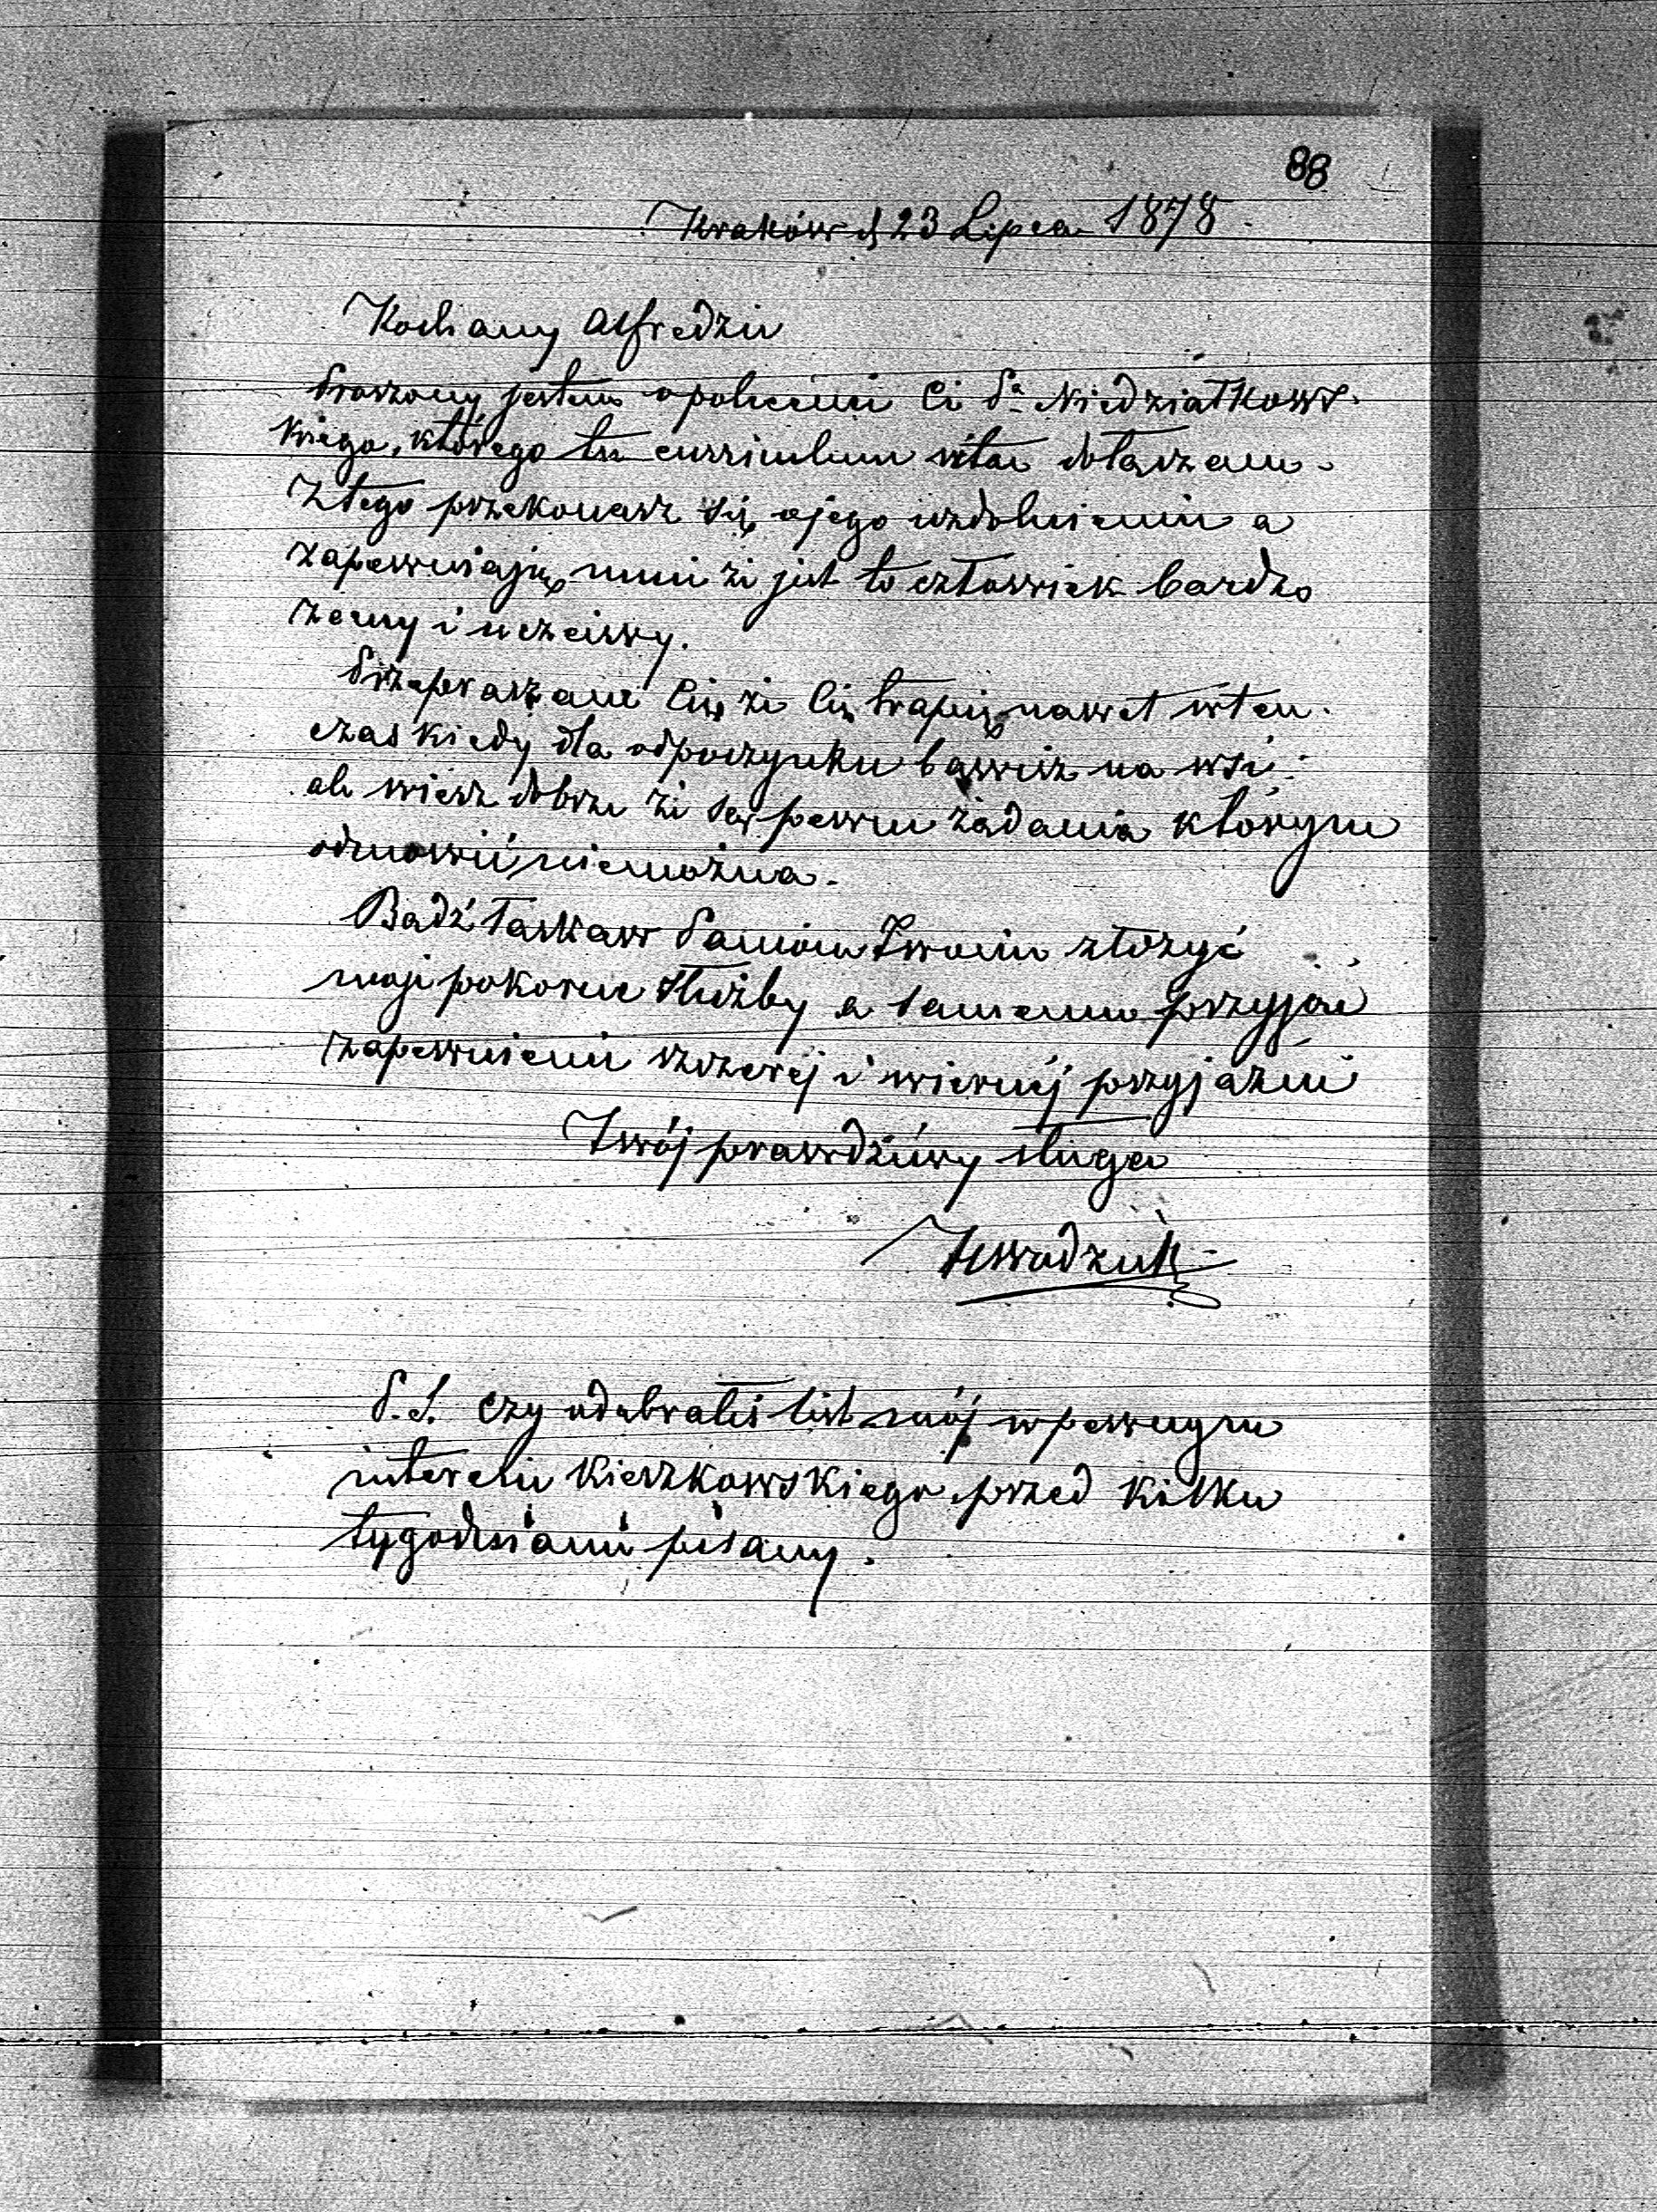 88
Kraków d 23 Lipca 1878.
Kochany Alfredzie
Proszony jestem o polecenie Ci Pa Niedziałkows-
kiego, którego tu curriculum vitae dołączam.
Z tego przekonasz się o jego uzdolnieniu a
zapewniają mnie że jest to człowiek bardzo
zacny i uczciwy.
Przepraszam Cię że Cię trapię nawet wten-
czas kiedy dla odpoczynku bawisz na wsi:
ale wiesz dobrze że są pewne żądania którym
odmówić niemożna.
Bądź łaskaw Paniom Twoim złożyć
moje pokorne służby a sam zaś przyjąć
zapewnienie szczerej i wiernej przyjaźni
Twój prawdziwy sługa
P.S. Czy odebrałeś list mój w pewnym
interesie Kieszkowskiego, przed kilku
tygodniami pisany.